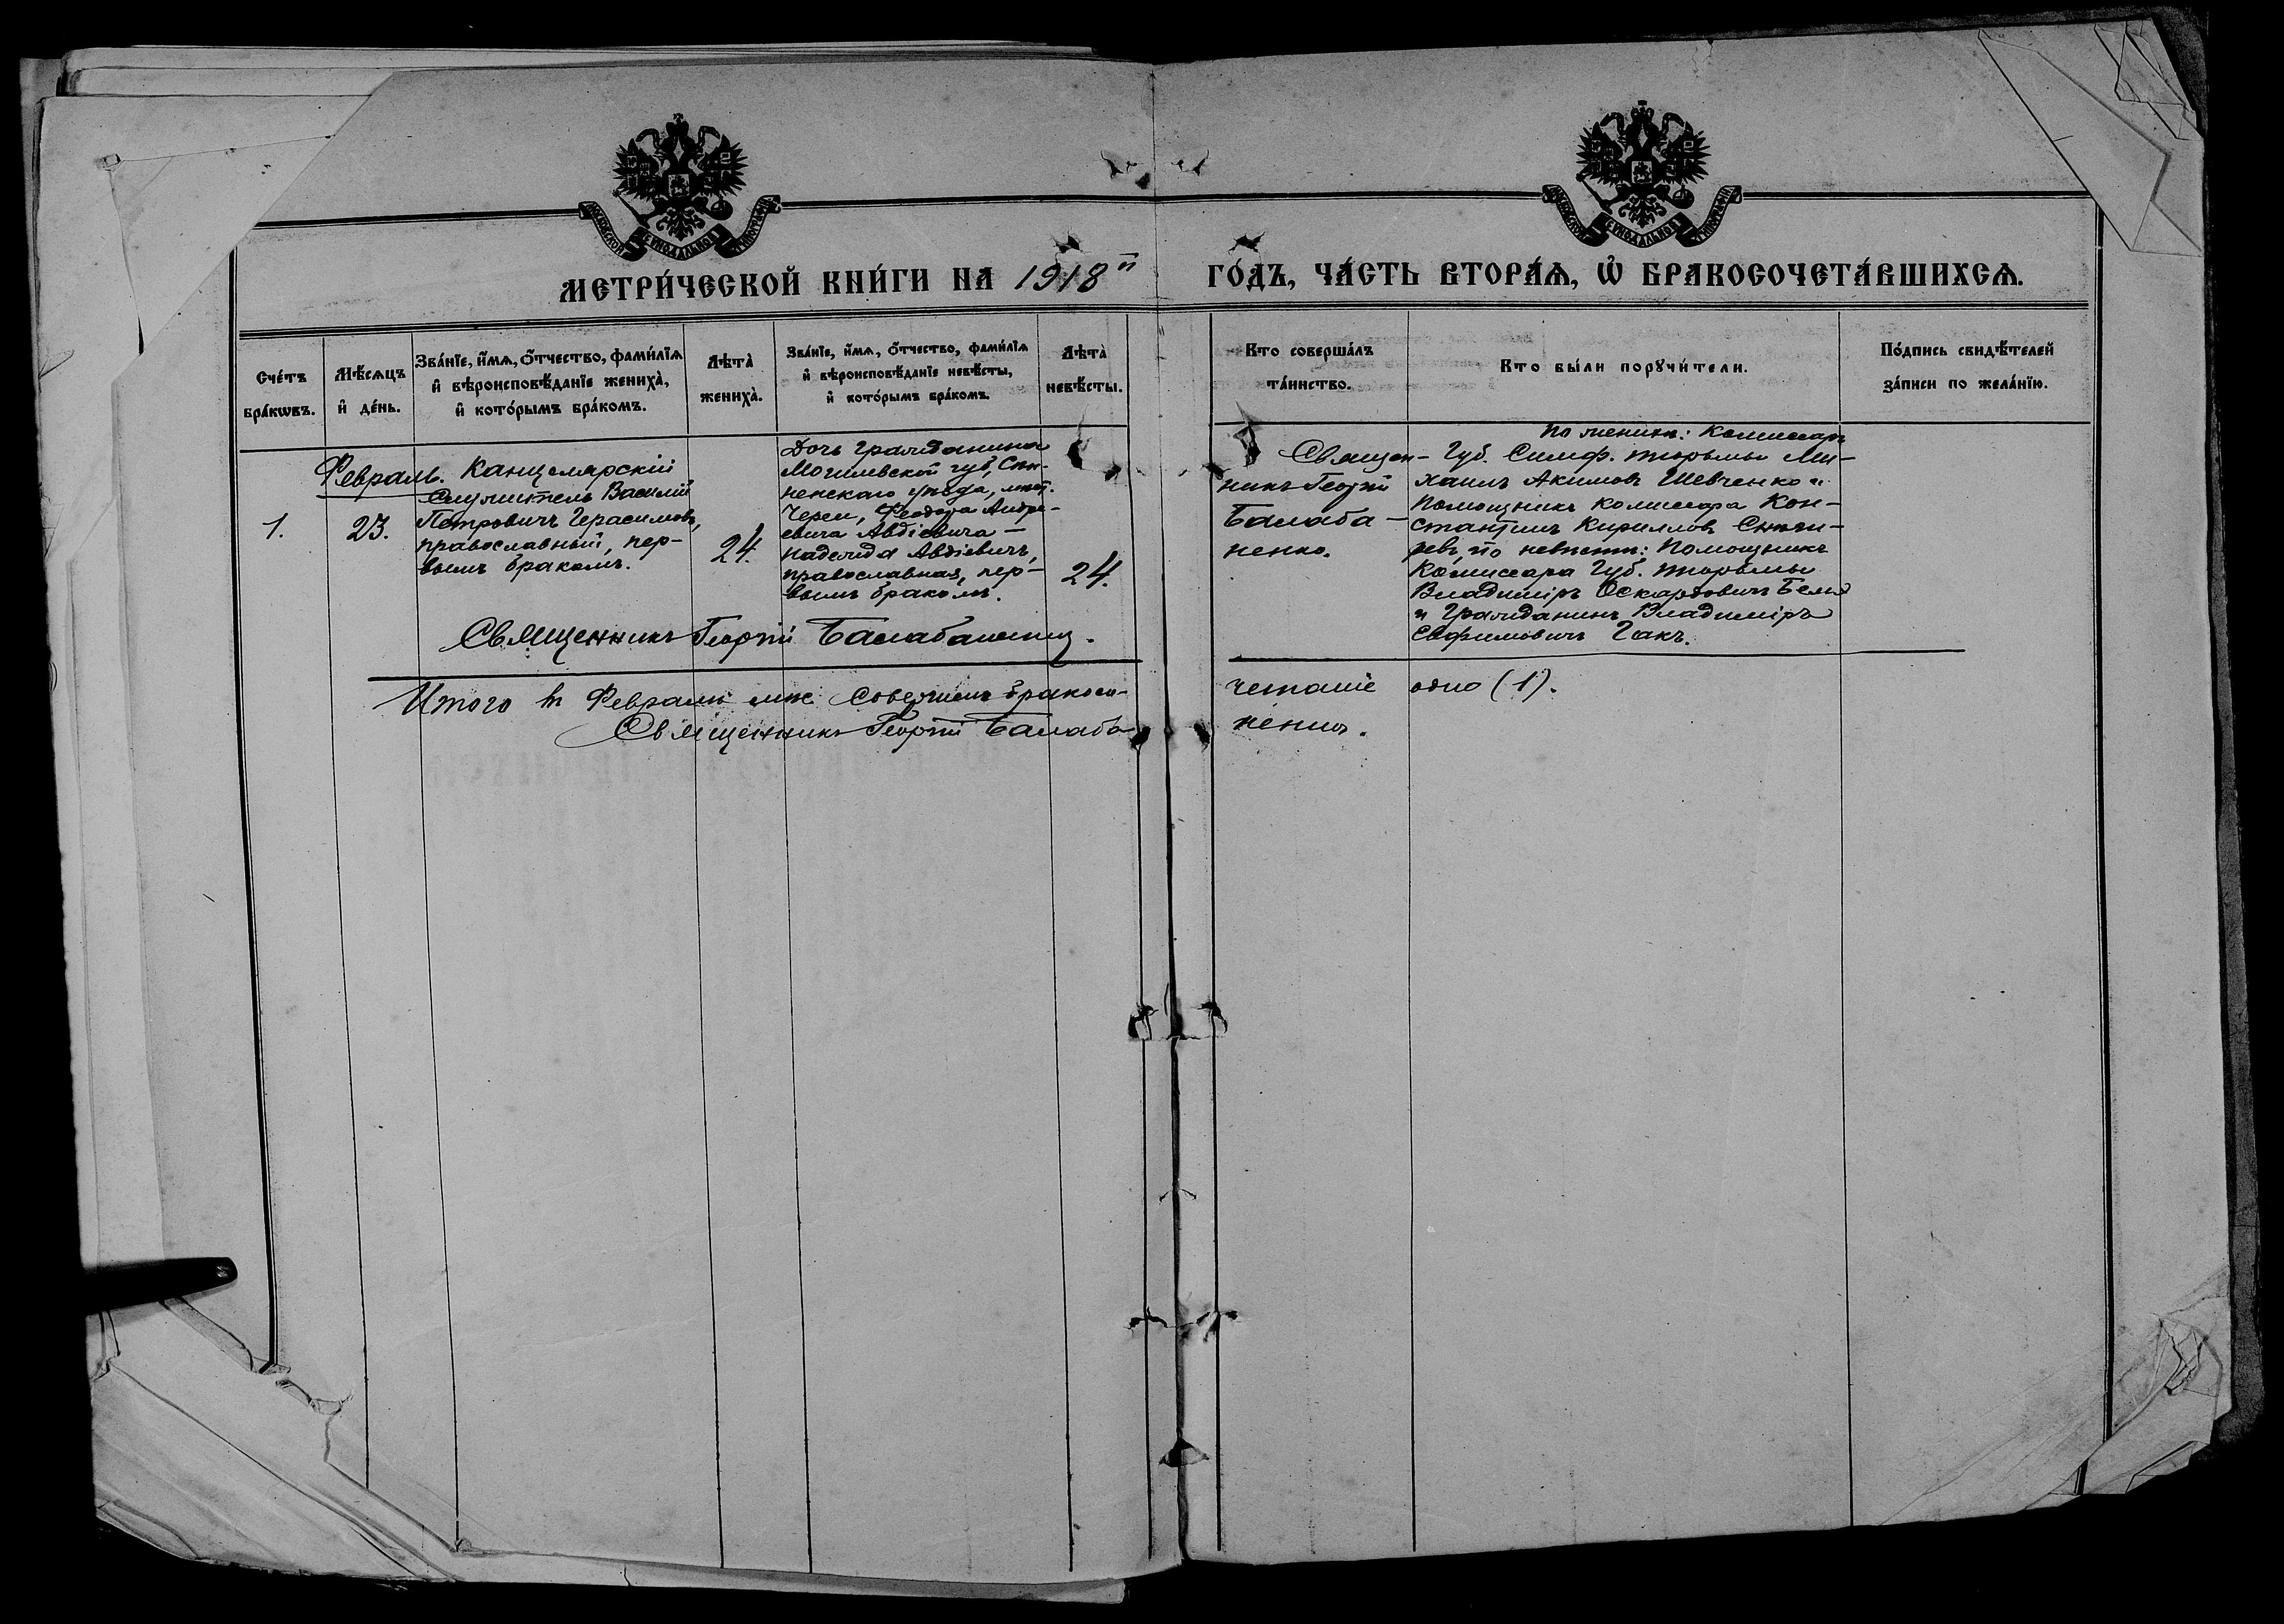 МОСКОВСКОЙ СѴНОДАЛЬНОЙ ТИПОГРАФІИ
МОСКОВСКОЙ СѴНОДАЛЬНОЙ ТИПОГРАФІИ
МЕТРИ́ЧЕСКОЙ КНИ́ГИ НА 1918й ГО́ДЪ, ЧА́СТЬ ВТОРА́Ѧ, Ѡ҆ БРАКОСОЧЕТА́ВШИХСѦ.
Сче́тъ бра́кωвъ.
Мѣ́сѧцъ и҆ де́нь.
Зва́нїе, и҆́мѧ, о҆́тчество, фами́лїѧ
и҆ вѣроисповѣ́данїе жениха̀,
и҆ кото́рымъ бра́комъ.
Лѣта̀ жениха̀.
Зва́нїе, и҆́мѧ, о҆́тчество, фами́лїѧ
и҆ вѣроисповѣ́данїе невѣ́сты,
и҆ кото́рымъ бра́комъ.
Лѣта̀ невѣ́сты.
Кто соверша́лъ
та́инство.
Кто бы́ли порꙋчи́тели.
По́дпись свидѣ́телей
за́писи по жела́нїю.
Февраль.
1.
23.
Канцелярскій
Служитель Василій
Петровичъ Герасимовъ,
православный, пер-
вымъ бракомъ.
24.
Дочь гражданина
Могилевской губ, Сѣн-
ненскаго уѣзда,
Череи, Феодора Андре-
евича Авдіевича —
Надежда Авдіевичъ,
православная, пер-
вымъ бракомъ.
24.
Священ-
никъ Георгій
Балаба-
ненко.
По женихѣ: Комиссаръ
Губ. Симф. тюрьмы Ми-
хаилъ Акимовъ Шевченко и
Помощникъ комиссара Кон-
стантинъ Кирилловъ
по невѣстѣ: Помощникъ
Комиссара Губ. тюрьмы
Владиміръ Оскаровичъ
и гражданинъ Владиміръ
Евфимовичъ Гакъ.
Священникъ Георгій Балабаненко.
Итого въ Февралѣ мѣс. Совершено бракосо-
четаніе одно (1).
Священникъ Георгій Балаба-
ненко.